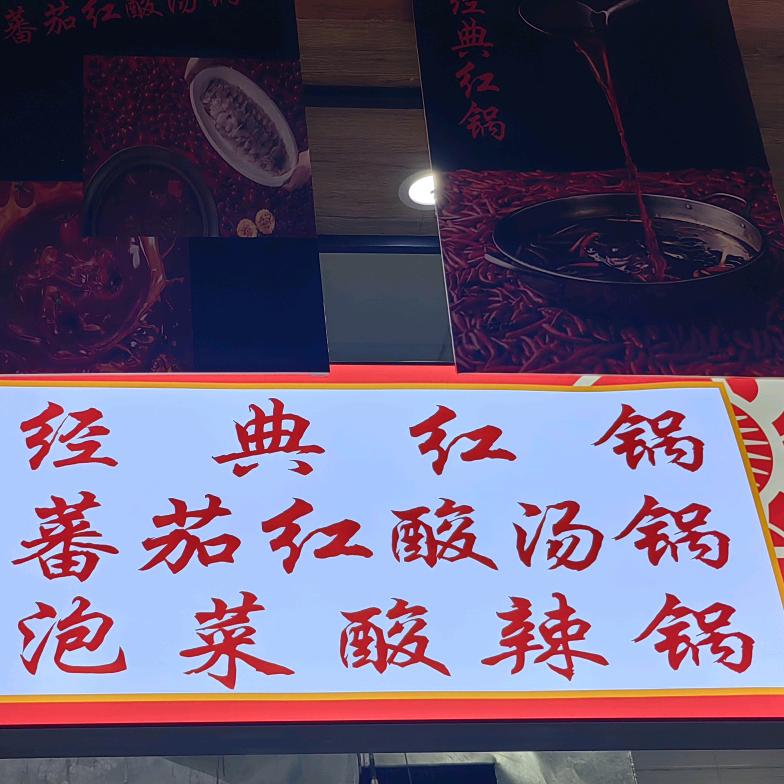 蕃茄红酸汤锅
经典红锅
经典红锅
蕃茄红酸汤锅
泡菜酸辣锅